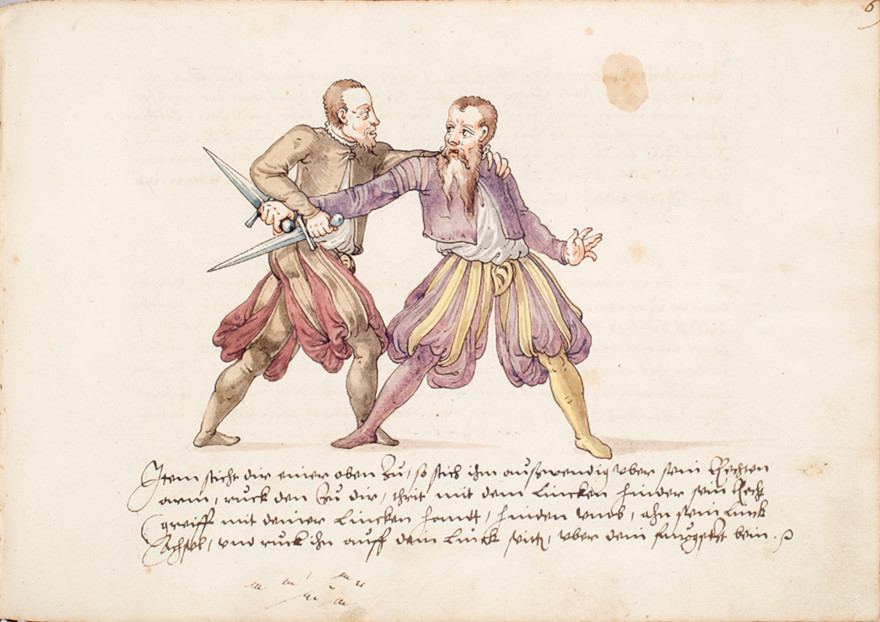 6
Item sticht dir einer oben Zu, so stich ihm auswendig vber sein Rechten
arm, ruck den Zu dir, thrit mit dem Lincken hinder sein Recht
greiff mit deiner Lincken handt, hinden vmb, ahn sein Linck
Achsel, vnd ruck ihn auff dein Linck seitt, vber dein bein.